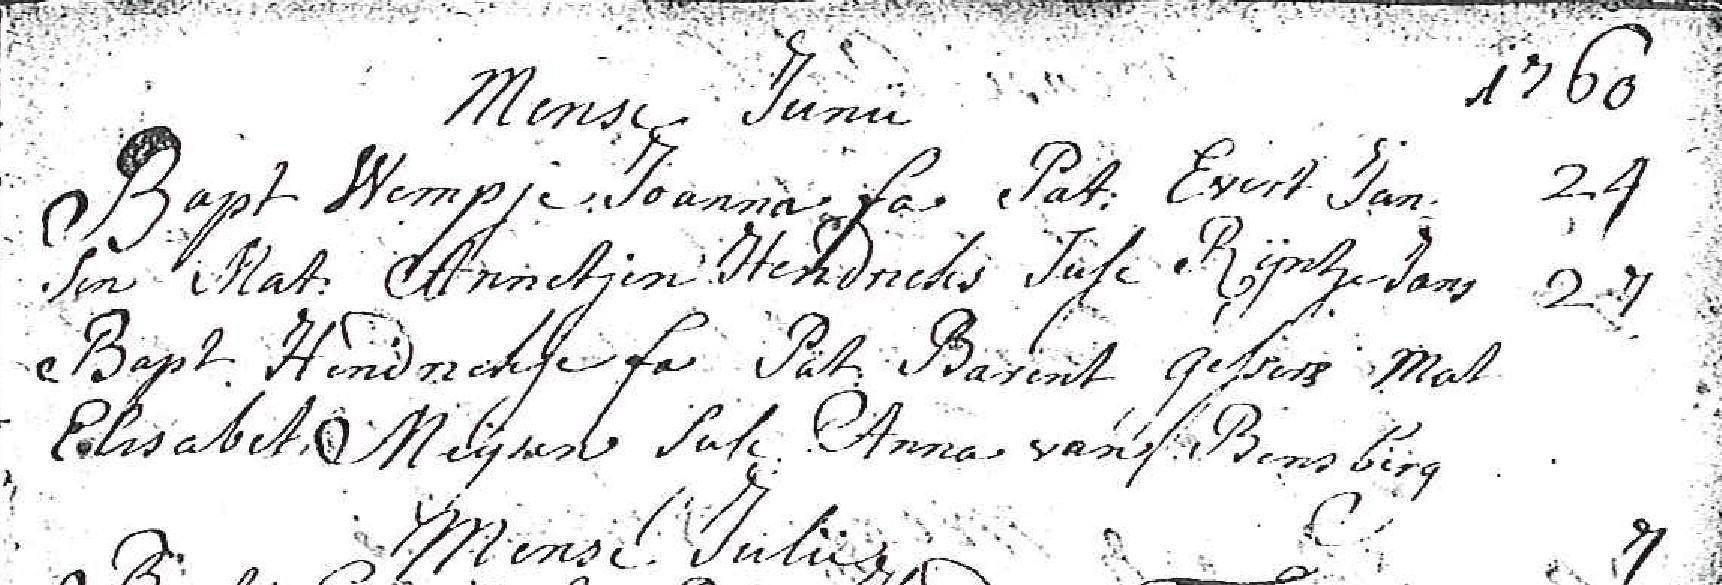 Mense Junii 1760
Bapt Wempje Joanna fa Pat: Evert Jan 24
sen Mat: Annetjen Hendricks Susc Rijntje Jans 27
Bapt Hendrickje fa Pat. Barent Mat
Elisabet Meijsen Susc Anna van Bensberg
Mense Julii 7